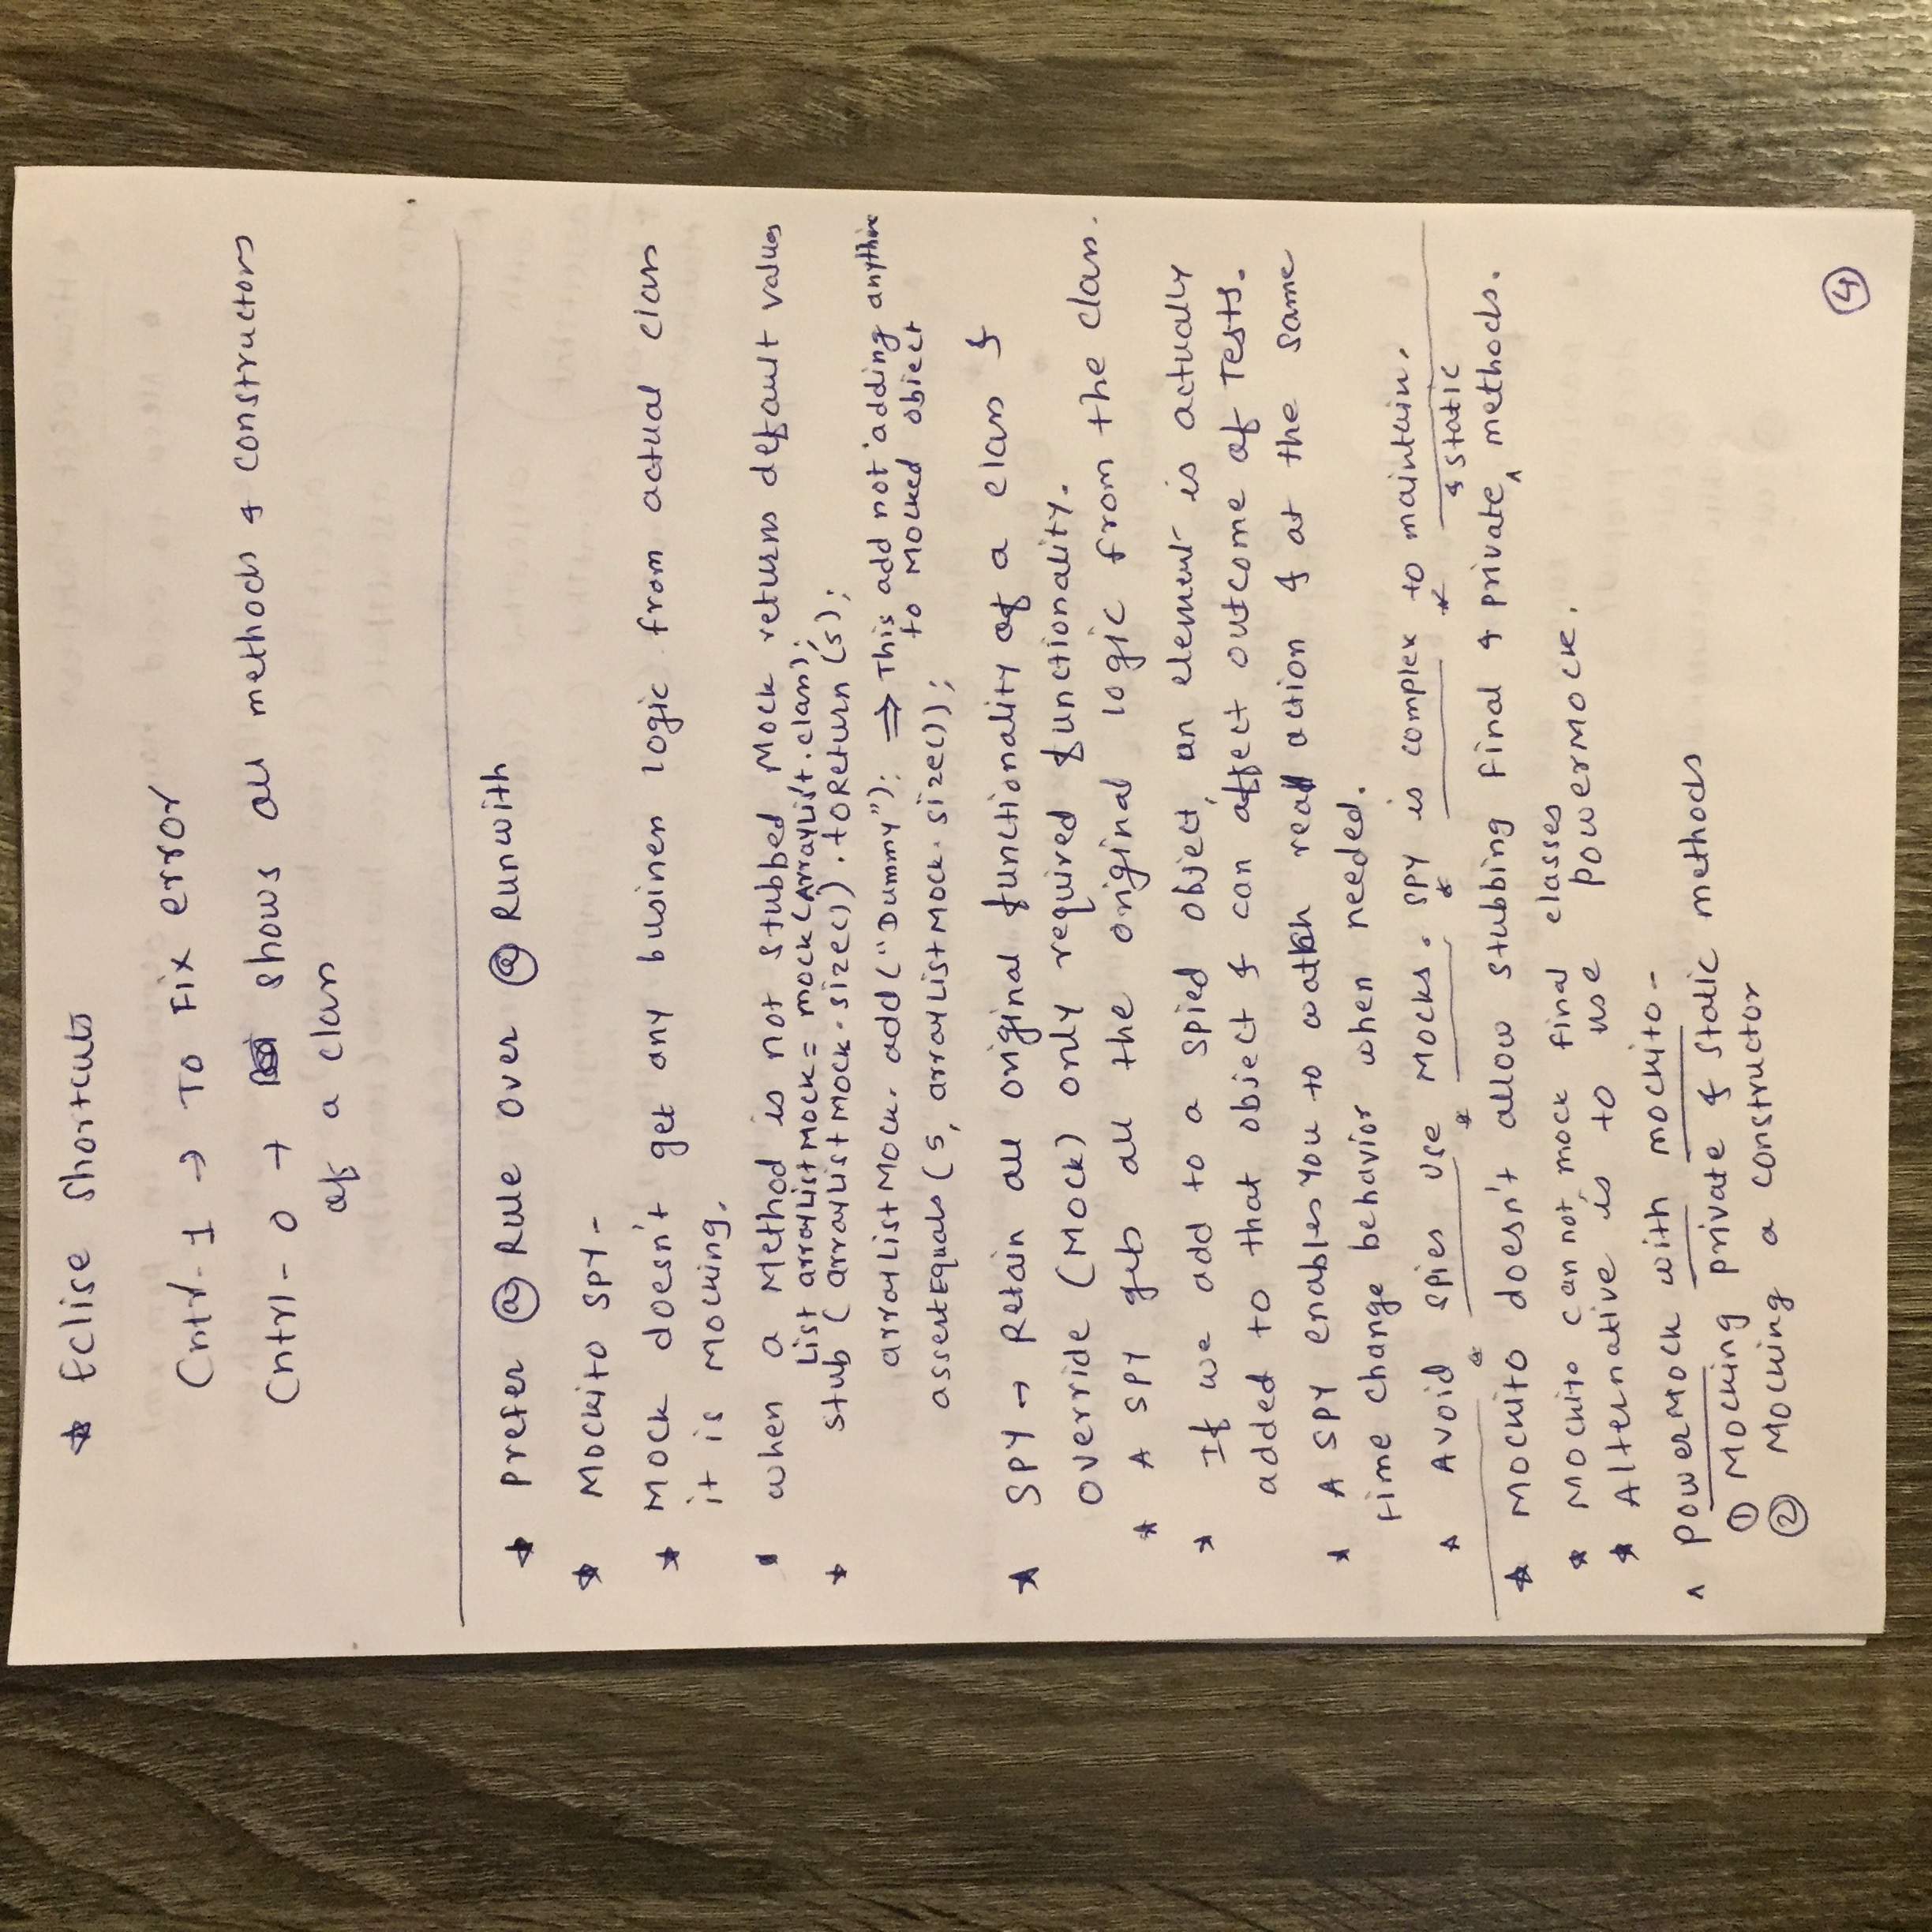 ★ Eclise Shortcuts
Cntrl-1 → To Fix error
Cntrl-O → shows all methods & constructors
of a class
★ Prefer @Rule over @Runwith
★ Mockito SPY -
★ Mock doesn't get any business logic from actual class
it is Mocking.
* when a Method is not stubbed Mock returns default values
List arrayListMock = mock(ArrayList.class);
★ stub (arrayListMock.size()).toReturn(5);
arrayListMock.add("Dummy"); ⇒ This add not adding anything
to Mocked object
assertEquals(5, arrayListMock.size());
★ SPY → Retain all original functionality of a class &
override (Mock) only required functionality.
★ A SPY gets all the original logic from the class.
★ If we add to a spied object, an element is actually
added to that object & can affect outcome of Tests.
★ A SPY enables you to watch real action & at the same
time change behavior when needed.
★ Avoid spies use Mocks. SPY is complex to maintain.
& static
★ Mockito doesn't allow stubbing Final & private ^ methods.
★ Mockito can not mock final classes
★ Alternative is to use PowerMock.
^ PowerMock with mockito -
① Mocking private & static methods
② Mocking a constructor
④